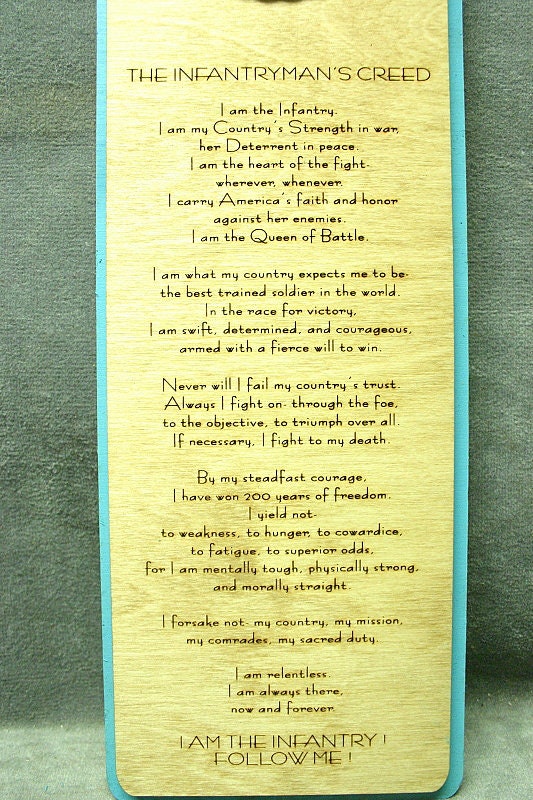 THE INFANTRYMAN'S CREED
I am the Infantry.
I am my Country's Strength in war,
her Deterrent in peace.
I am the heart of the fight-
wherever, whenever.
I carry America's faith and honor
against her enemies.
I am the Queen of Battle.
I am what my country expects me to be-
the best trained soldier in the world.
In the race for victory,
I am swift, determined, and courageous,
armed with a fierce will to win.
Never will I fail my country's trust.
Always I fight on- through the foe,
to the objective, to triumph over all.
If necessary, I fight to my death.
By my steadfast courage,
I have won 200 years of freedom.
I yield not-
to weakness, to hunger, to cowardice,
to fatigue, to superior odds,
for I am mentally tough, physically strong,
and morally straight.
I forsake not- my country, my mission,
my comrades, my sacred duty.
I am relentless.
I am always there,
now and forever.
I AM THE INFANTRY !
FOLLOW ME !